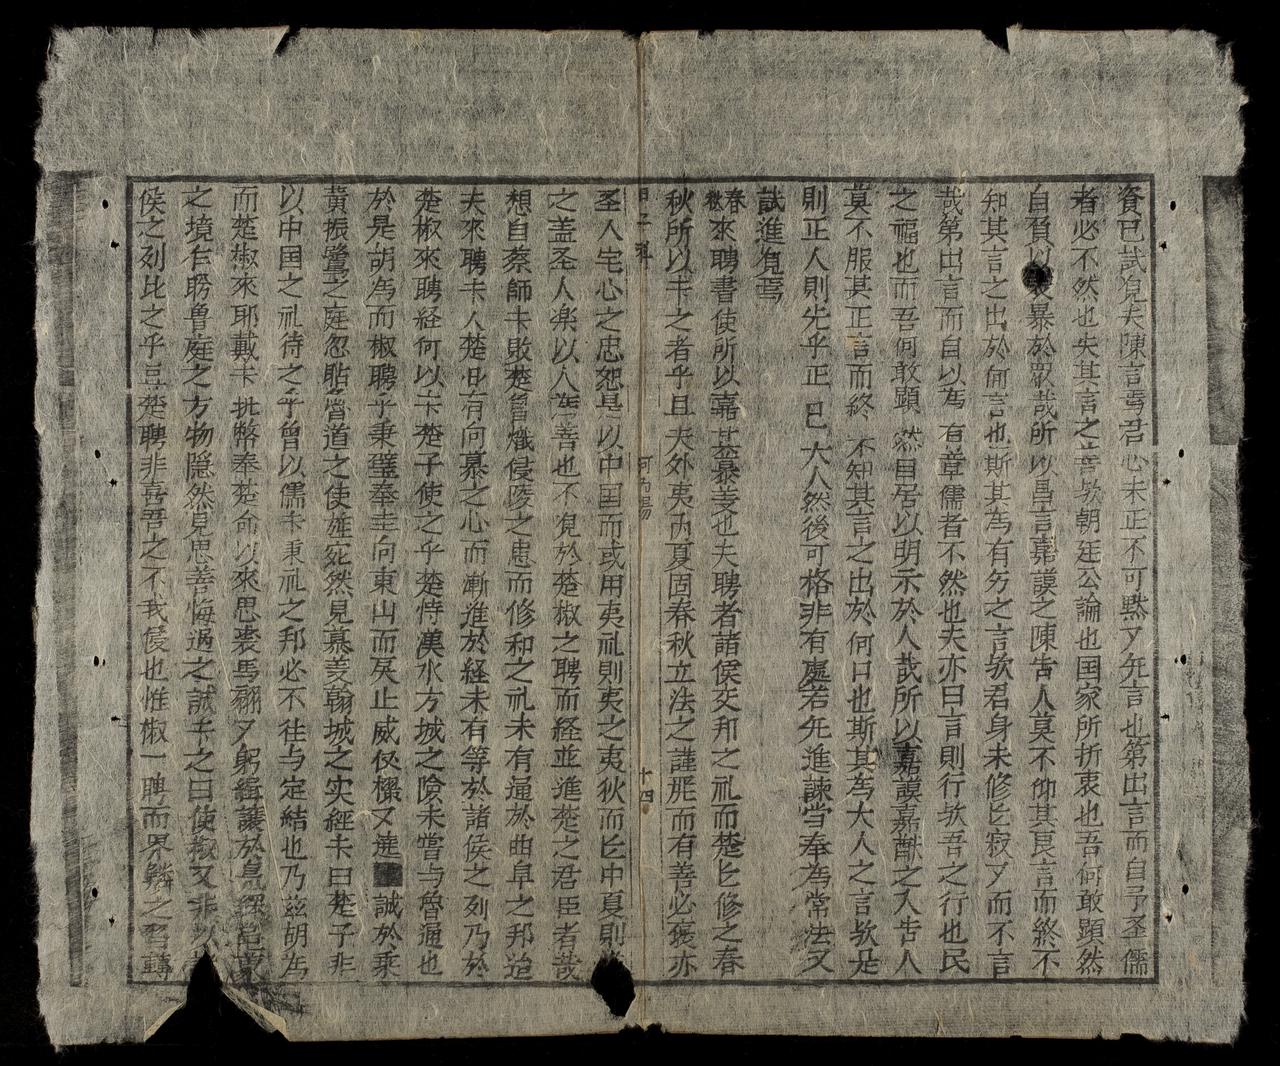 資已試覌夫陳言焉君心未正不可黙又先言也第出言而自予圣儒
者必不然也夫其言之言欤朝廷公論也囯家所折衷也吾何敢顕然
自負以表暴於眾哉所以昌言嘉謨之陳告人莫不仰其良言而終不
知其言之出於何言也斯其為有方之言欤君身未修匕寂又而不言
哉第出言而自以為有章儒者不然也夫亦曰言則行欤吾之行也民
之福也而吾何敢顕然自居以明示於人哉所以嘉謨嘉猷之入告人
莫不服其正言而終不知其言之出於何口也斯其為大人之言欤是
則正人則先乎正已大人然後可格非有處若先進諫当奉為常法又
試進覌焉
春秋來聘書使所以嘉其慕姜也夫聘者諸侯交邦之礼而楚匕修之春
秋所以卡之者乎且夫外夷内夏固春秋立法之謹厐而有善必褒亦
甲子科 河内場 十四
圣人宅心之忠恕是以中囯而或用夷礼則夷之夷狄而匕中夏則
之盖圣人楽以人為善也不覌於楚椒之聘而経並進楚之君臣者哉
想自蔡師卡敗楚曾熾侵陵之患而修和之礼未有通於曲阜之邦迨
夫來聘卡人楚必有向慕之心而漸進於経未有等於諸侯之列乃於
楚椒來聘経何以卡楚子使之乎楚恃漢水方城之險未嘗与魯通也
於是胡為而椒聘乎秉璧奉圭向東山而戾止威仪櫂又進誠於乘
黃振鷺之庭忽貼魯道之使雄宛然見慕姜翰城之实経卡曰楚子非
以中囯之礼待之乎曾以儒卡秉礼之邦必不往与定結也乃茲胡為
而楚椒來耶戴卡执幣奉楚命以來思裘馬翩又躬緝讓於
之境乍聘魯庭之方物隠然見思善悔過之誠卡之曰使椒又非以
侯之列比之乎豈楚聘非喜吾之不我侵也惟椒一聘而界鄰之